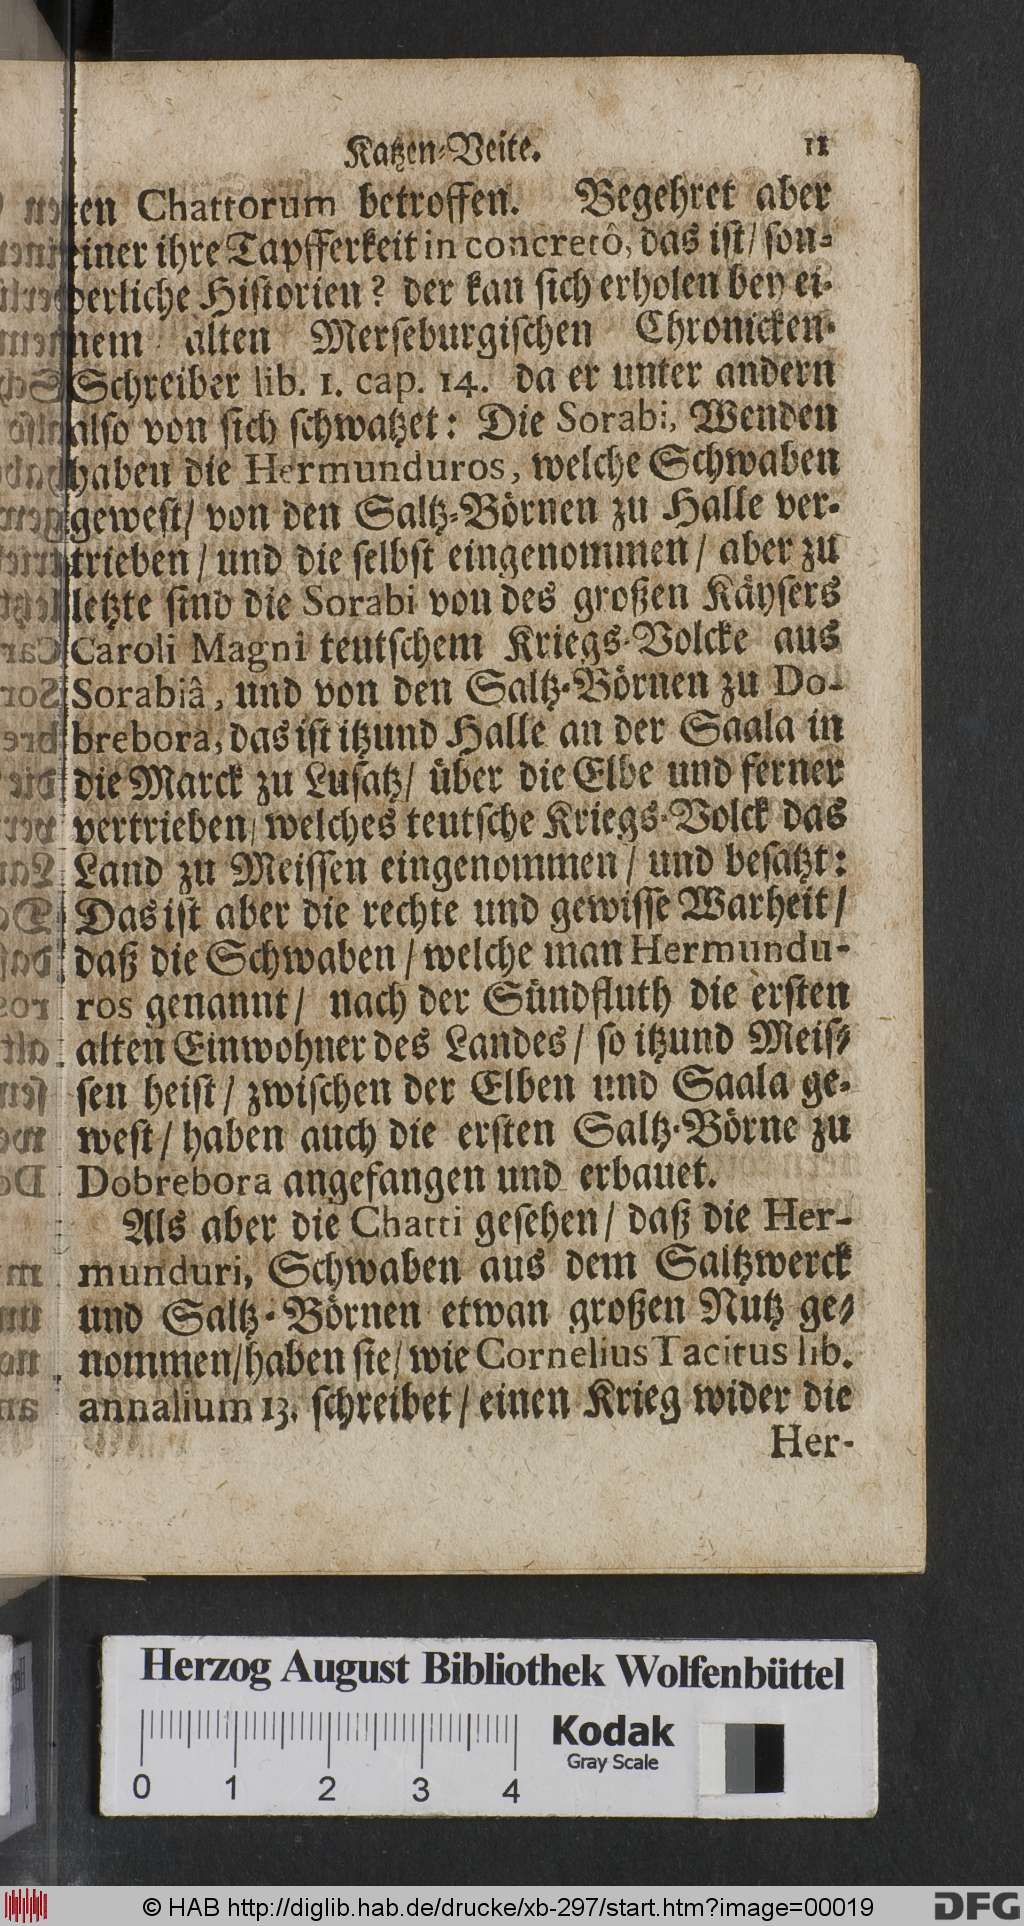 Katzen-Veite. 11
ten Chattorum betroffen. Begehret aber
einer ihre Tapfferkeit in concretô, das ist/ son-
derliche Historien? der kan sich erholen bey ei-
nem alten Merseburgischen Chronicken-
Schreiber lib. 1. cap. 14. da er unter andern
also von sich schwatzet: Die Sorabi, Wenden
haben die Hermunduros, welche Schwaben
gewest/ von den Saltz-Börnen zu Halle ver-
trieben/ und die selbst eingenommen/ aber zu
letzte sind die Sorabi von des großen Käysers
Caroli Magni teutschem Kriegs-Volcke aus
Sorabiâ, und von den Saltz-Börnen zu Do-
brebora, das ist itzund Halle an der Saala in
die Marck zu Lusatz/ über die Elbe und ferner
vertrieben/ welches teutsche Kriegs-Volck das
Land zu Meissen eingenommen/ und besatzt:
Das ist aber die rechte und gewisse Warheit/
daß die Schwaben/ welche man Hermundu-
ros genannt/ nach der Sündfluth die ersten
alten Einwohner des Landes/ so itzund Meis-
sen heist/ zwischen der Elben und Saala ge-
west/ haben auch die ersten Saltz-Börne zu
Dobrebora angefangen und erbauet.
Als aber die Chatti gesehen/ daß die Her-
munduri, Schwaben aus dem Saltzwerck
und Saltz-Börnen etwan großen Nutz ge-
nommen/ haben sie/ wie Cornelius Tacitus lib.
annalium 13. schreibet/ einen Krieg wider die
Her-
Herzog August Bibliothek Wolfenbüttel
Kodak
Gray Scale
0 1 2 3 4
© HAB http://diglib.hab.de/drucke/xb-297/start.htm?image=00019
DFG